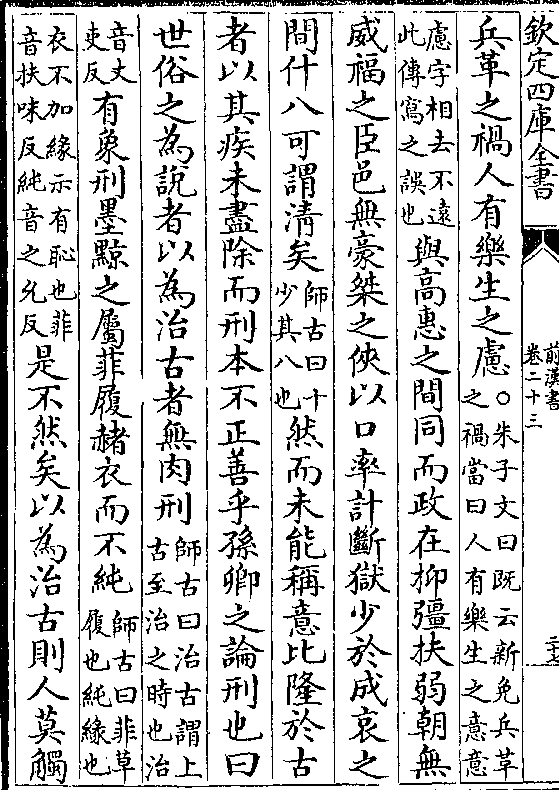 欽定四庫全書
前漢書
卷二十三
兵革之禍人有樂生之慮○朱子文曰既云新免兵革之禍當曰人有樂生之意意
慮字相去不遠此傳寫之誤也與高惠之間同而政在抑彊扶弱朝無
威福之臣邑無豪桀之俠以口率計斷獄少於成哀之
間什八可謂清矣師古曰十少其八也然而未能稱意比隆於古
者以其疾未盡除而刑本不正善乎孫卿之論刑也曰
世俗之為說者以為治古者無肉刑師古曰治古謂上古至治之時也治
音丈吏反有象刑墨黥之屬菲履赭衣而不純師古曰菲草履也純緣也
衣不加緣示有恥也菲音扶味反純音之允反是不然矣以為治古則人莫觸